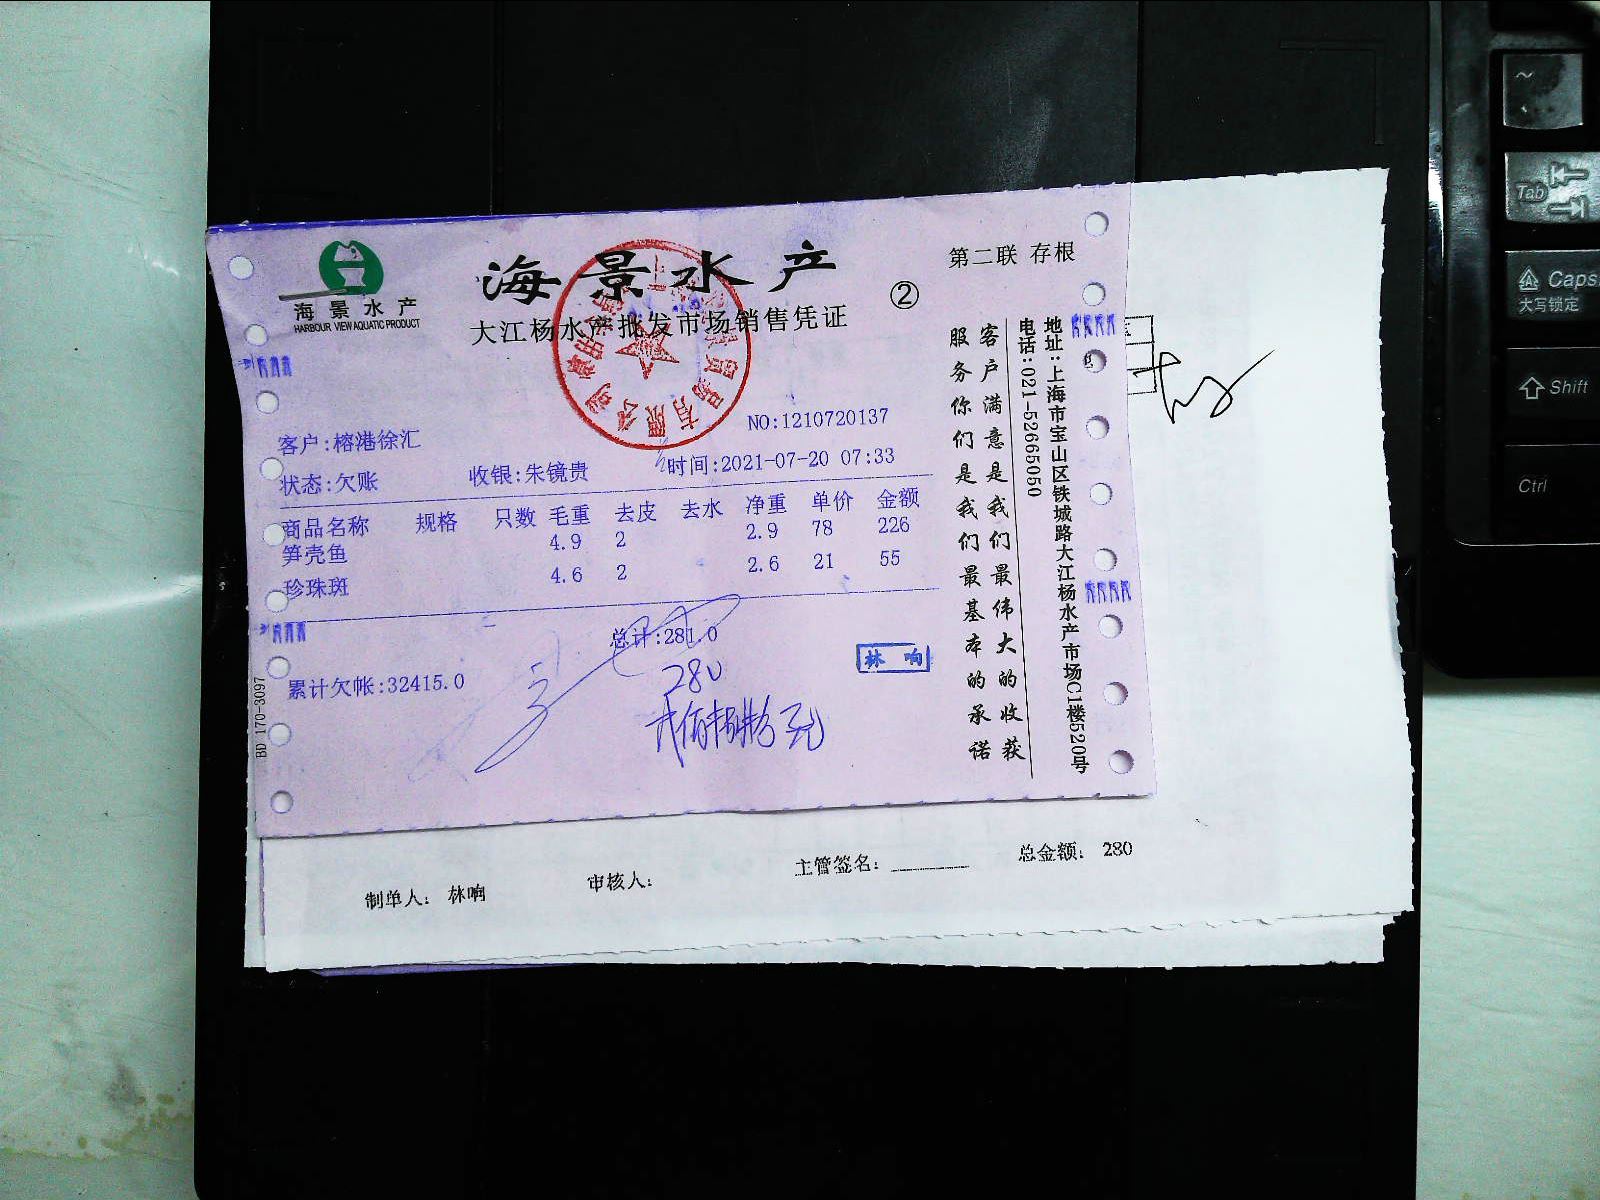 海景水产
HARBOUR VIEW AQUATIC PRODUCT
海景水产
大江杨水产批发市场销售凭证
②
第二联 存根
NO:1210720137
客户:榕港徐汇
状态:欠账 收银:朱镜贵 时间:2021-07-20 07:33
商品名称 规格 只数 毛重 去皮 去水 净重 单价 金额
笋壳鱼 4.9 2 2.9 78 226
珍珠斑 4.6 2 2.6 21 55
总计:281.0
累计欠帐:32415.0
280
林响
BD 170-3097
地址:上海市宝山区铁城路大江杨水产市场C1楼520号
电话:021-52665050
客户满意是我们最伟大的收获
服务你们是我们最基本的承诺
制单人: 林响 审核人: 主管签名: 总金额: 280
~
Tab
Caps
大写锁定
Shift
Ctrl